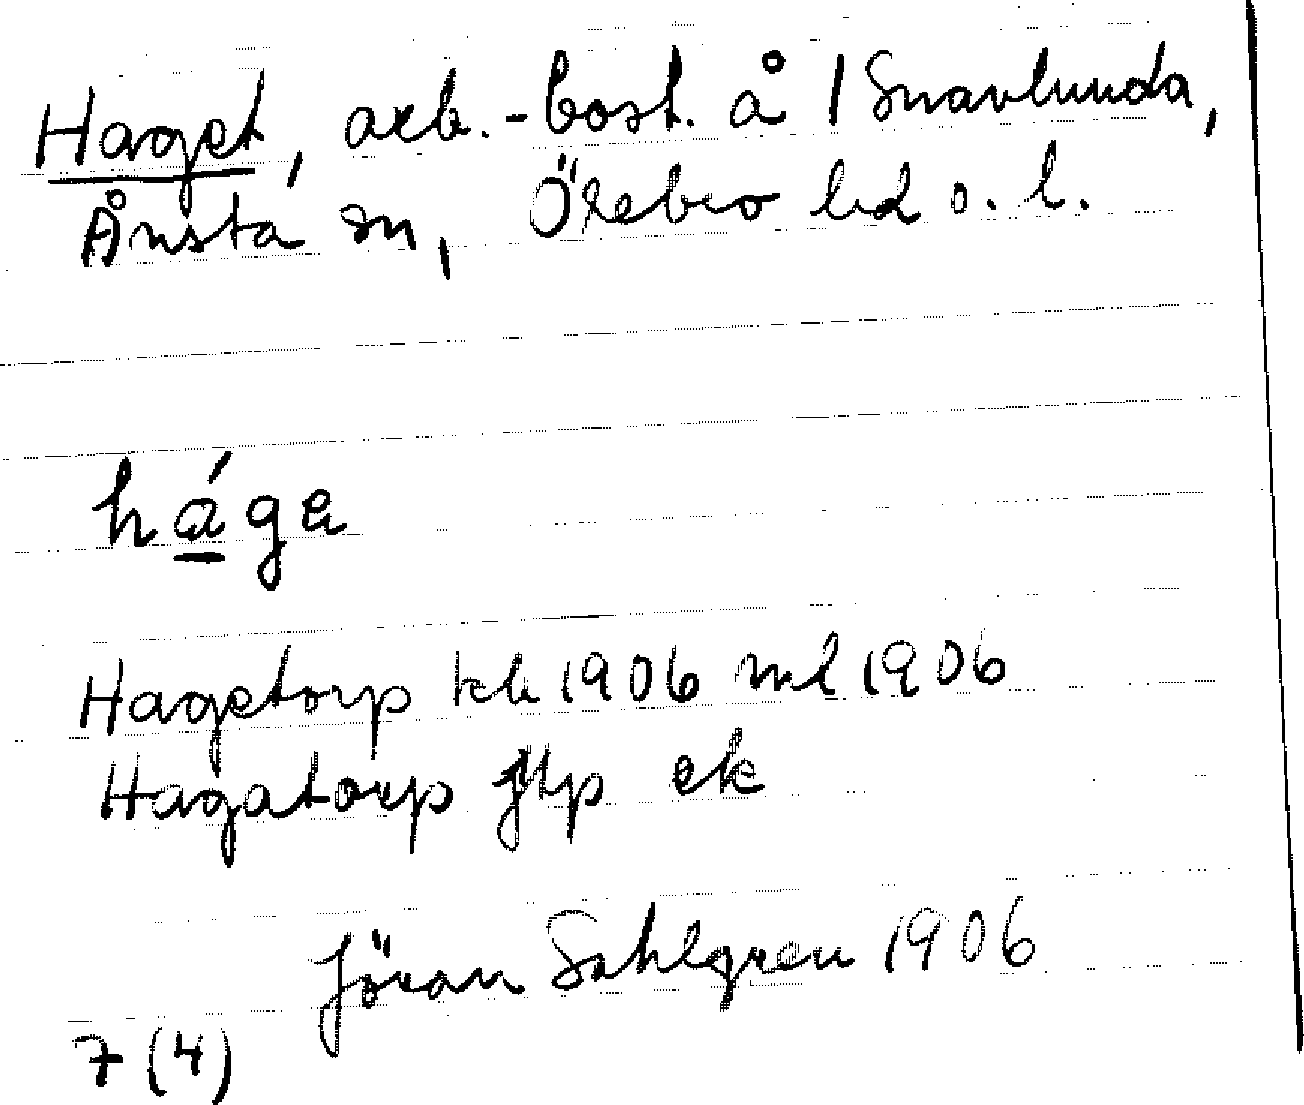 Haget, arb.-bost. å 1 Snavlunda,
Ånsta sn, Örebro hd o. l.
háge
Hagetorp kb 1906 ml 1906
Hagatorp jltp ek
Jöran Sahlgren 1906
7 (4)